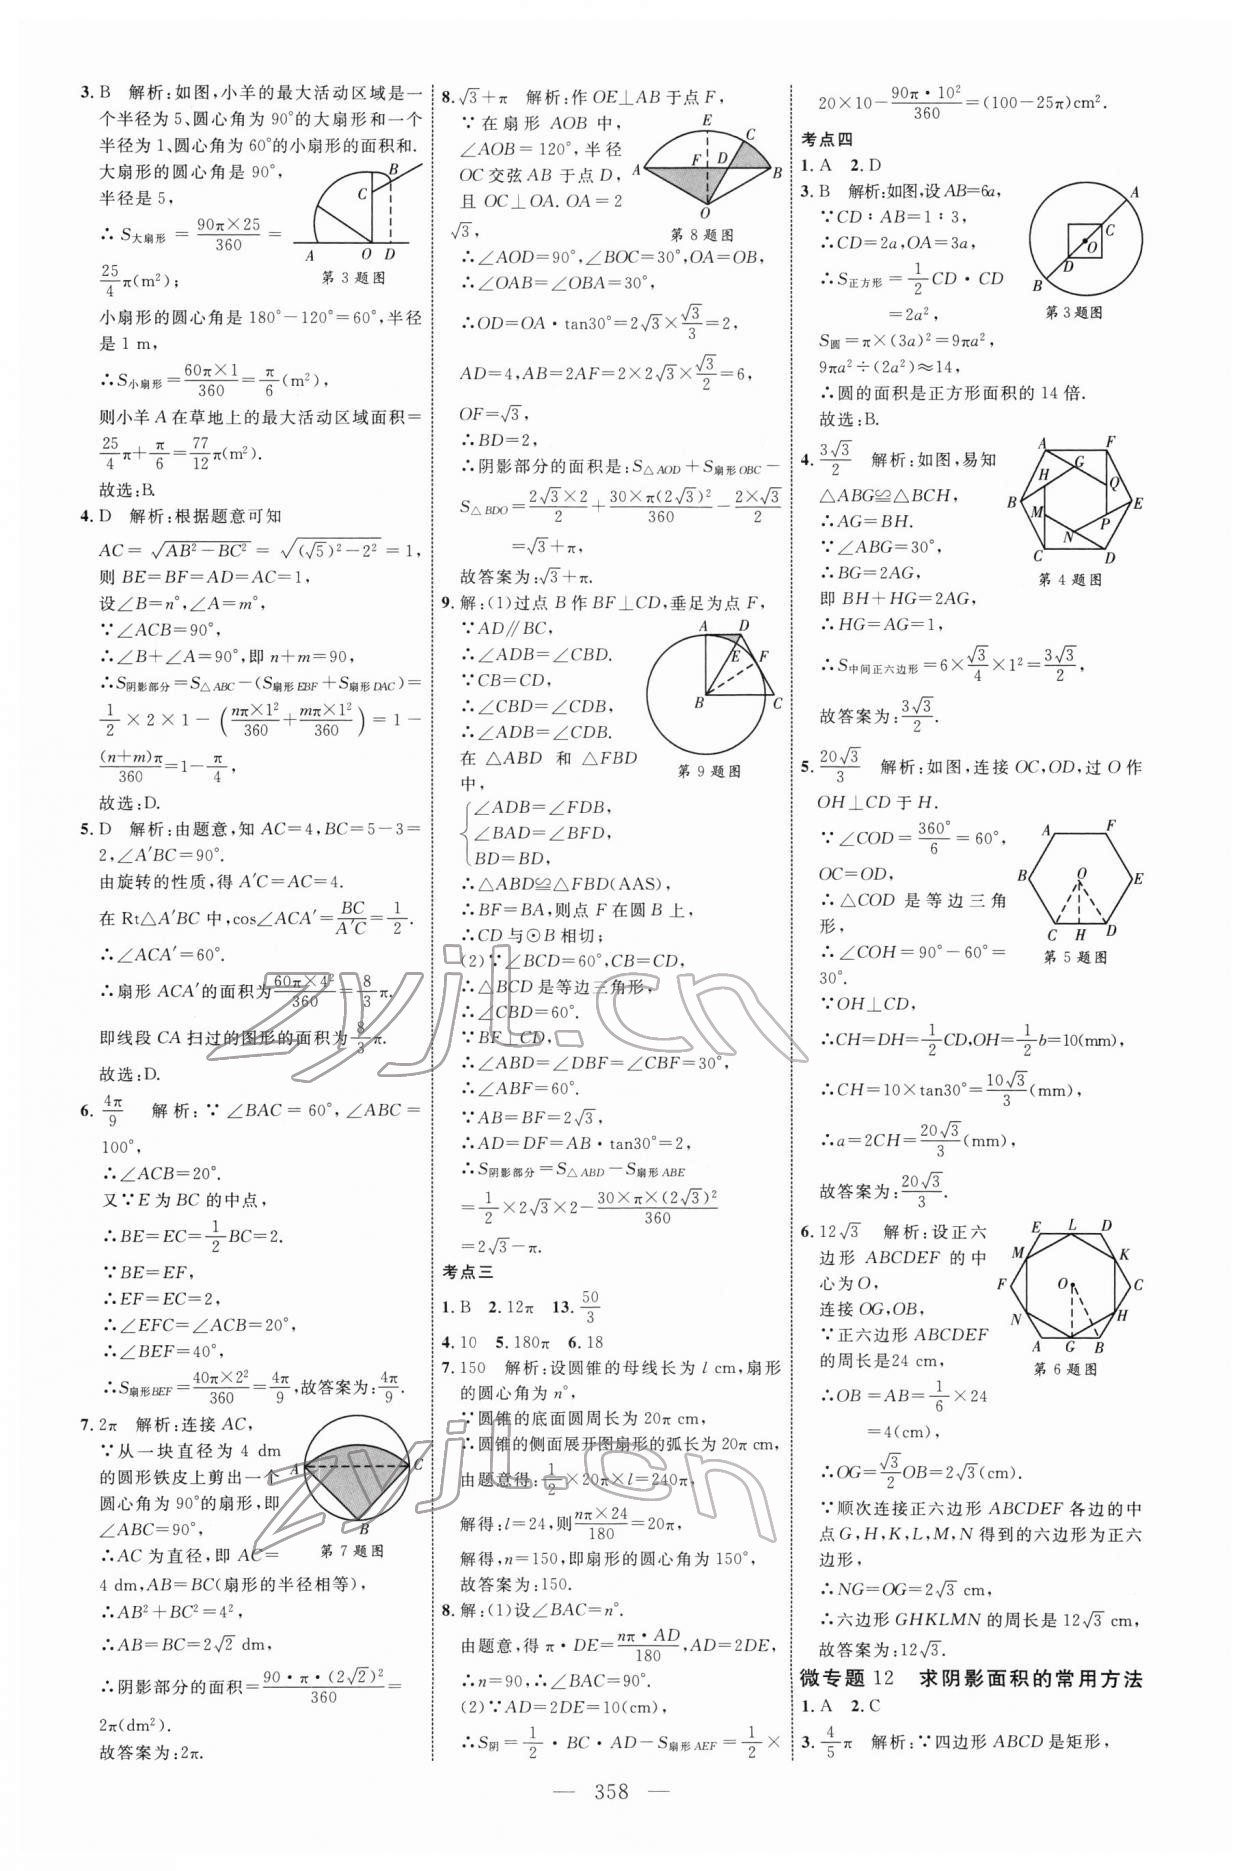 3. B　解析:如图,小羊的最大活动区域是一
个半径为5、圆心角为90°的大扇形和一个
半径为1、圆心角为60°的小扇形的面积和.
大扇形的圆心角是90°,
半径是5,
∴S大扇形=90π×25/360=
25/4π(m²);
A O D B C
第3题图
小扇形的圆心角是180°−120°=60°,半径
是1 m,
∴S小扇形=60π×1/360=π/6(m²),
则小羊A在草地上的最大活动区域面积=
25/4π+π/6=77/12π(m²).
故选:B.
4. D　解析:根据题意可知
AC=√(AB²−BC²)=√((√5)²−2²)=1,
则BE=BF=AD=AC=1,
设∠B=n°,∠A=m°,
∵∠ACB=90°,
∴∠B+∠A=90°,即n+m=90,
∴S阴影部分=S△ABC−(S扇形EBF+S扇形DAC)=
1/2×2×1−(nπ×1²/360+mπ×1²/360)=1−
(n+m)π/360=1−π/4,
故选:D.
5. D　解析:由题意,知AC=4,BC=5−3=
2,∠A′BC=90°.
由旋转的性质,得A′C=AC=4.
在Rt△A′BC中,cos∠ACA′=BC/A′C=1/2.
∴∠ACA′=60°.
∴扇形ACA′的面积为60π×4²/360=8/3π.
即线段CA扫过的图形的面积为8/3π.
故选:D.
6. 4π/9　解析:∵∠BAC=60°,∠ABC=
100°,
∴∠ACB=20°.
又∵E为BC的中点,
∴BE=EC=1/2BC=2.
∵BE=EF,
∴EF=EC=2,
∴∠EFC=∠ACB=20°,
∴∠BEF=40°,
∴S扇形BEF=40π×2²/360=4π/9,故答案为:4π/9.
7. 2π　解析:连接AC,
∵从一块直径为4 dm
的圆形铁皮上剪出一个
圆心角为90°的扇形,即
∠ABC=90°,
A C B
第7题图
∴AC为直径,即AC=
4 dm,AB=BC(扇形的半径相等),
∴AB²+BC²=4²,
∴AB=BC=2√2 dm,
∴阴影部分的面积=90·π·(2√2)²/360=
2π(dm²).
故答案为:2π.
8. √3+π　解析:作OE⊥AB于点F,
∵在扇形AOB中,
∠AOB=120°,半径
OC交弦AB于点D,
且OC⊥OA.OA=2
√3,
E C A F D B O
第8题图
∴∠AOD=90°,∠BOC=30°,OA=OB,
∴∠OAB=∠OBA=30°,
∴OD=OA·tan30°=2√3×√3/3=2,
AD=4,AB=2AF=2×2√3×√3/2=6,
OF=√3,
∴BD=2,
∴阴影部分的面积是:S△AOD+S扇形OBC−
S△BDO=2√3×2/2+30×π(2√3)²/360−2×√3/2
=√3+π,
故答案为:√3+π.
9. 解:(1)过点B作BF⊥CD,垂足为点F,
∵AD∥BC,
∴∠ADB=∠CBD.
∵CB=CD,
∴∠CBD=∠CDB,
∴∠ADB=∠CDB.
在△ABD和△FBD
中,
A D E F B C
第9题图
{∠ADB=∠FDB,
∠BAD=∠BFD,
BD=BD,
∴△ABD≌△FBD(AAS),
∴BF=BA,则点F在圆B上,
∴CD与⊙B相切;
(2)∵∠BCD=60°,CB=CD,
∴△BCD是等边三角形,
∴∠CBD=60°.
∵BF⊥CD,
∴∠ABD=∠DBF=∠CBF=30°,
∴∠ABF=60°.
∵AB=BF=2√3,
∴AD=DF=AB·tan30°=2,
∴S阴影部分=S△ABD−S扇形ABE
=1/2×2√3×2−30×π×(2√3)²/360
=2√3−π.
考点三
1. B　2. 12π　13. 50/3
4. 10　5. 180π　6. 18
7. 150　解析:设圆锥的母线长为l cm,扇形
的圆心角为n°,
∵圆锥的底面圆周长为20π cm,
∴圆锥的侧面展开图扇形的弧长为20π cm,
由题意得:1/2×20π×l=240π,
解得:l=24,则nπ×24/180=20π,
解得,n=150,即扇形的圆心角为150°,
故答案为:150.
8. 解:(1)设∠BAC=n°.
由题意,得π·DE=nπ·AD/180,AD=2DE,
∴n=90,∴∠BAC=90°.
(2)∵AD=2DE=10(cm),
∴S阴=1/2·BC·AD−S扇形AEF=1/2×
20×10−90π·10²/360=(100−25π)cm².
考点四
1. A　2. D
3. B　解析:如图,设AB=6a,
∵CD∶AB=1∶3,
∴CD=2a,OA=3a,
∴S正方形=1/2CD·CD
=2a²,
A C O D B
第3题图
S圆=π×(3a)²=9πa²,
9πa²÷(2a²)≈14,
∴圆的面积是正方形面积的14倍.
故选:B.
4. 3√3/2　解析:如图,易知
△ABG≌△BCH,
∴AG=BH.
∵∠ABG=30°,
∴BG=2AG,
即BH+HG=2AG,
∴HG=AG=1,
A F H G Q B E M P N C D
第4题图
∴S中间正六边形=6×√3/4×1²=3√3/2,
故答案为:3√3/2.
5. 20√3/3　解析:如图,连接OC,OD,过O作
OH⊥CD于H.
∵∠COD=360°/6=60°,
OC=OD,
∴△COD是等边三角
形,
∴∠COH=90°−60°=
30°.
A F B O E C H D
第5题图
∵OH⊥CD,
∴CH=DH=1/2CD,OH=1/2b=10(mm),
∴CH=10×tan30°=10√3/3(mm),
∴a=2CH=20√3/3(mm),
故答案为:20√3/3.
6. 12√3　解析:设正六
边形ABCDEF的中
心为O,
连接OG,OB,
∵正六边形ABCDEF
的周长是24 cm,
∴OB=AB=1/6×24
=4(cm),
E L D M K F O C N H A G B
第6题图
∴OG=√3/2OB=2√3(cm).
∵顺次连接正六边形ABCDEF各边的中
点G,H,K,L,M,N得到的六边形为正六
边形,
∴NG=OG=2√3 cm,
∴六边形GHKLMN的周长是12√3 cm,
故答案为:12√3.
微专题12　求阴影面积的常用方法
1. A　2. C
3. 4/5π　解析:∵四边形ABCD是矩形,
— 358 —
zyjl.cn
zyjl.cn